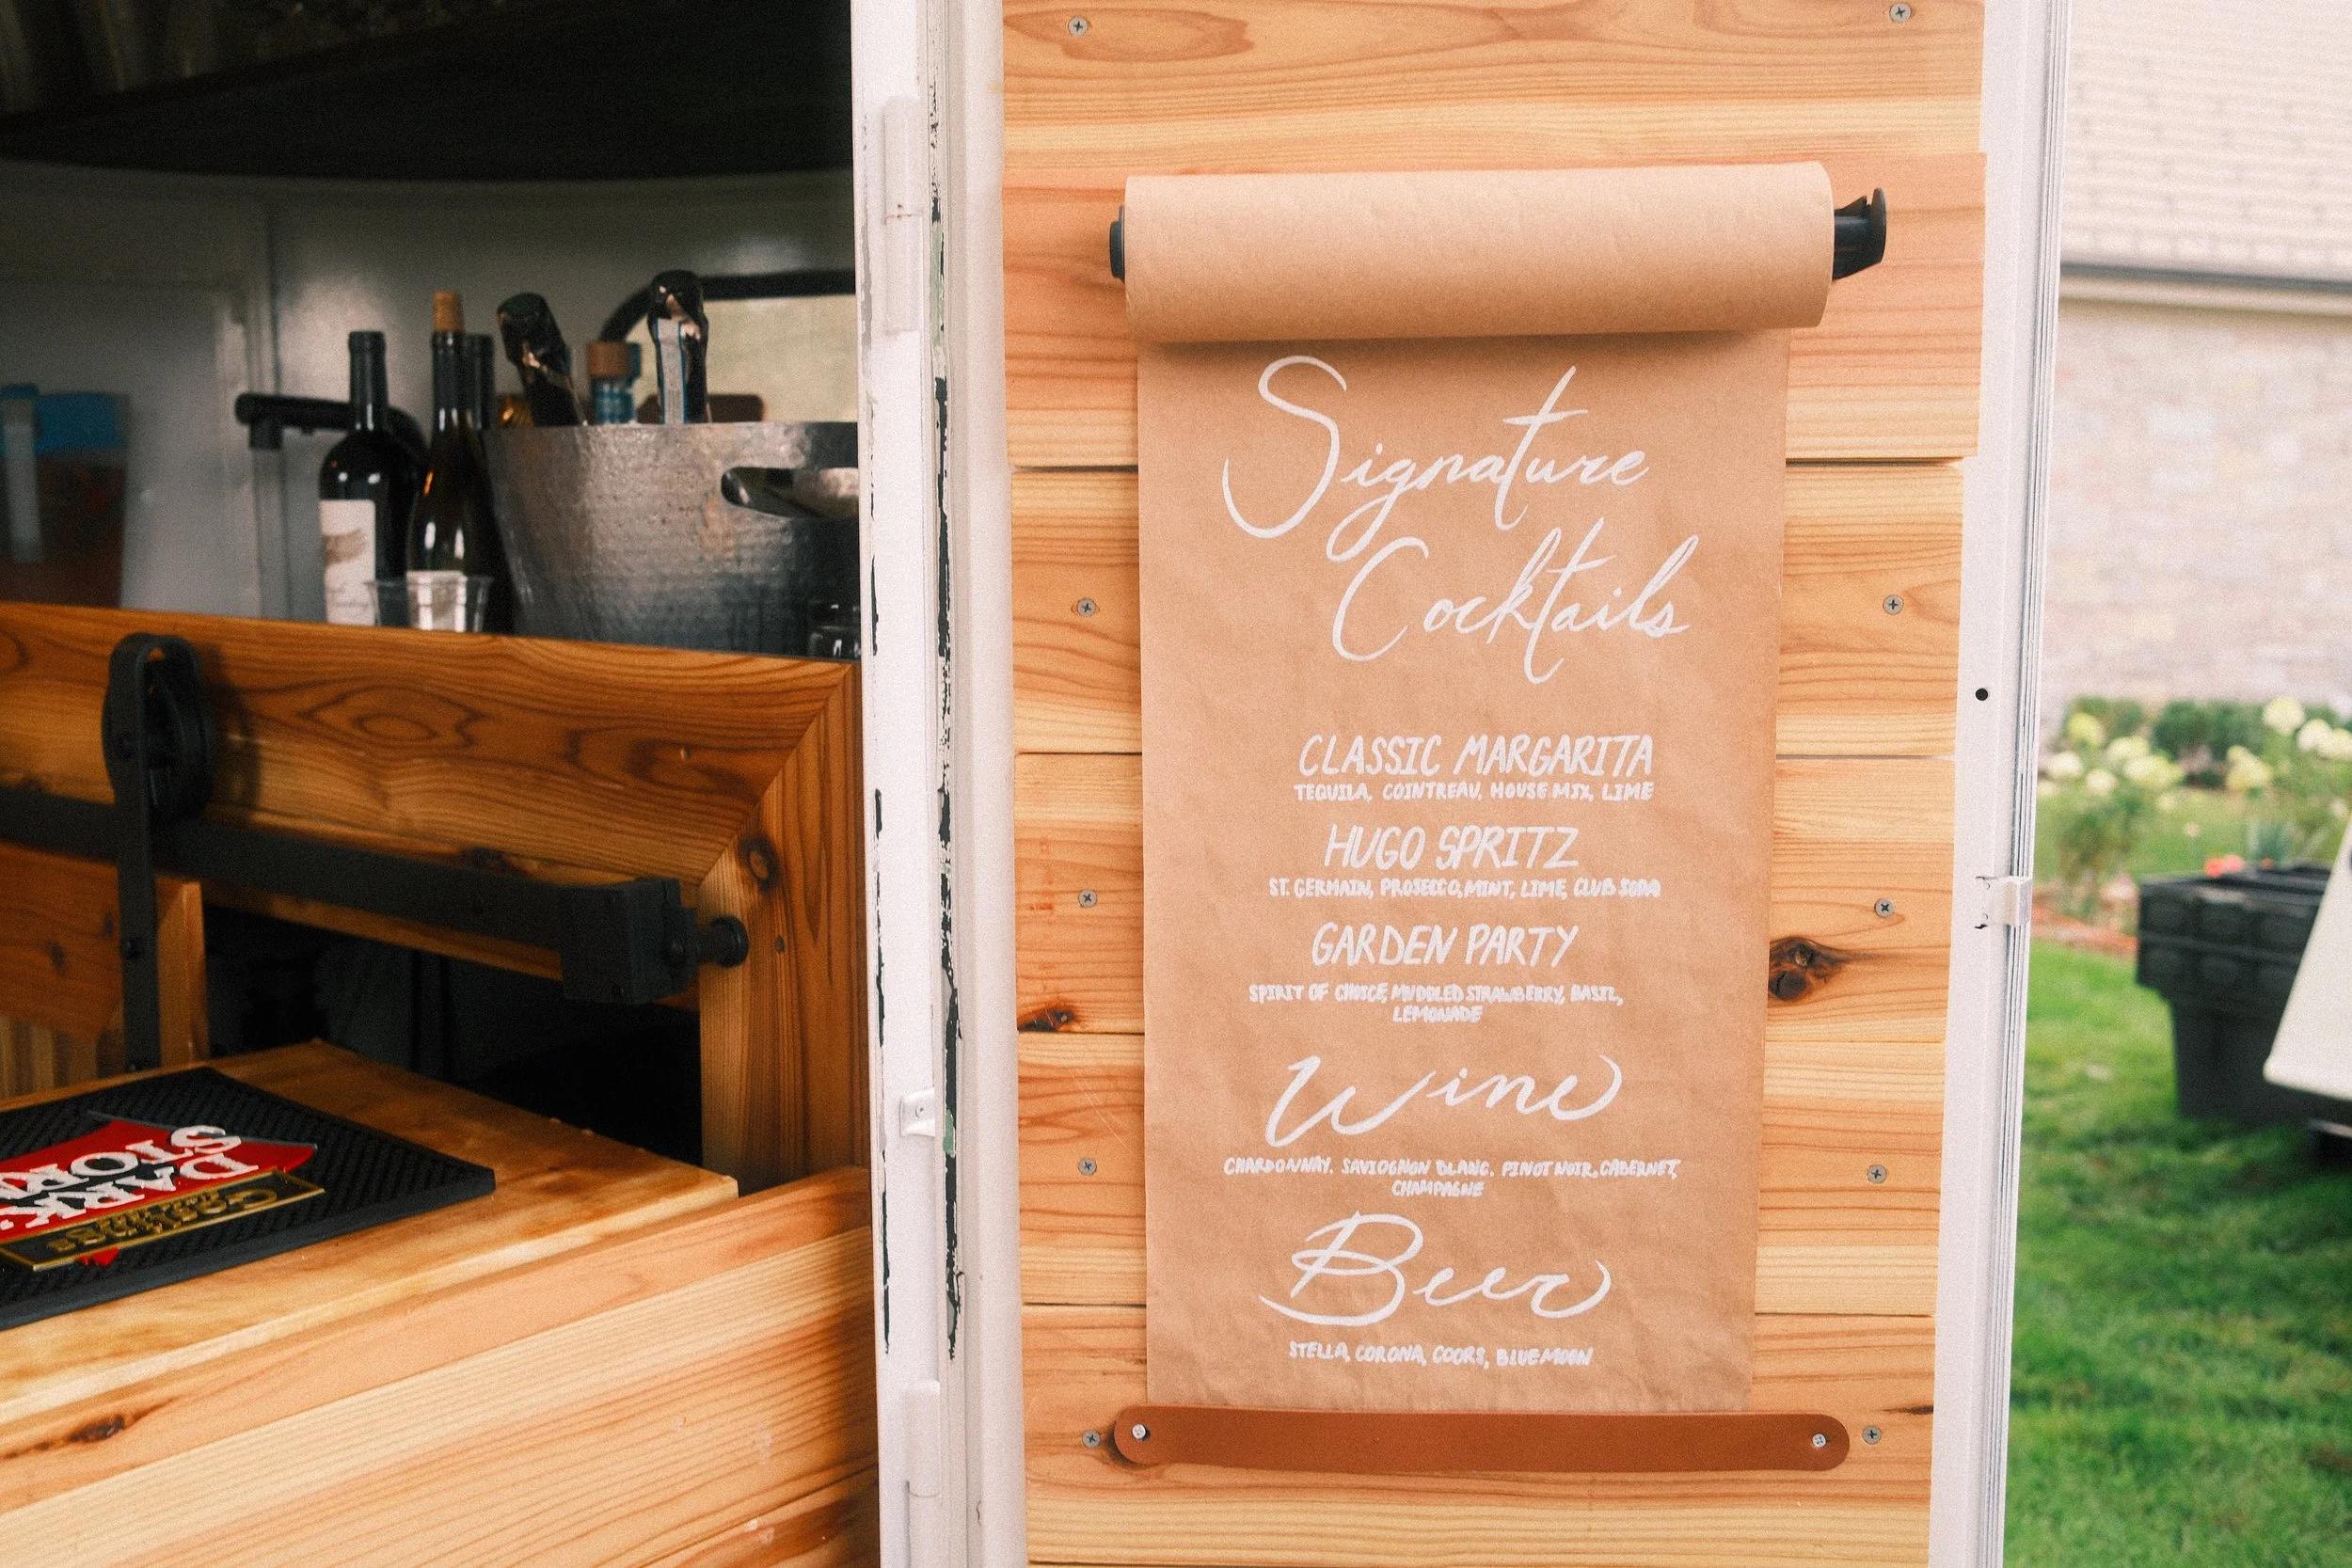 Signature
Cocktails
CLASSIC MARGARITA
TEQUILA, COINTREAU, HOUSE MIX, LIME
HUGO SPRITZ
ST. GERMAIN, PROSECCO, MINT, LIME, CLUB SODA
GARDEN PARTY
SPIRIT OF CHOICE, MUDDLED STRAWBERRY, BASIL,
LEMONADE
Wine
CHARDONNAY. SAVIOGNON BLANC. PINOT NOIR, CABERNET,
CHAMPAGNE
Beer
STELLA, CORONA, COORS, BLUE MOON
GOSLINGS
DARK